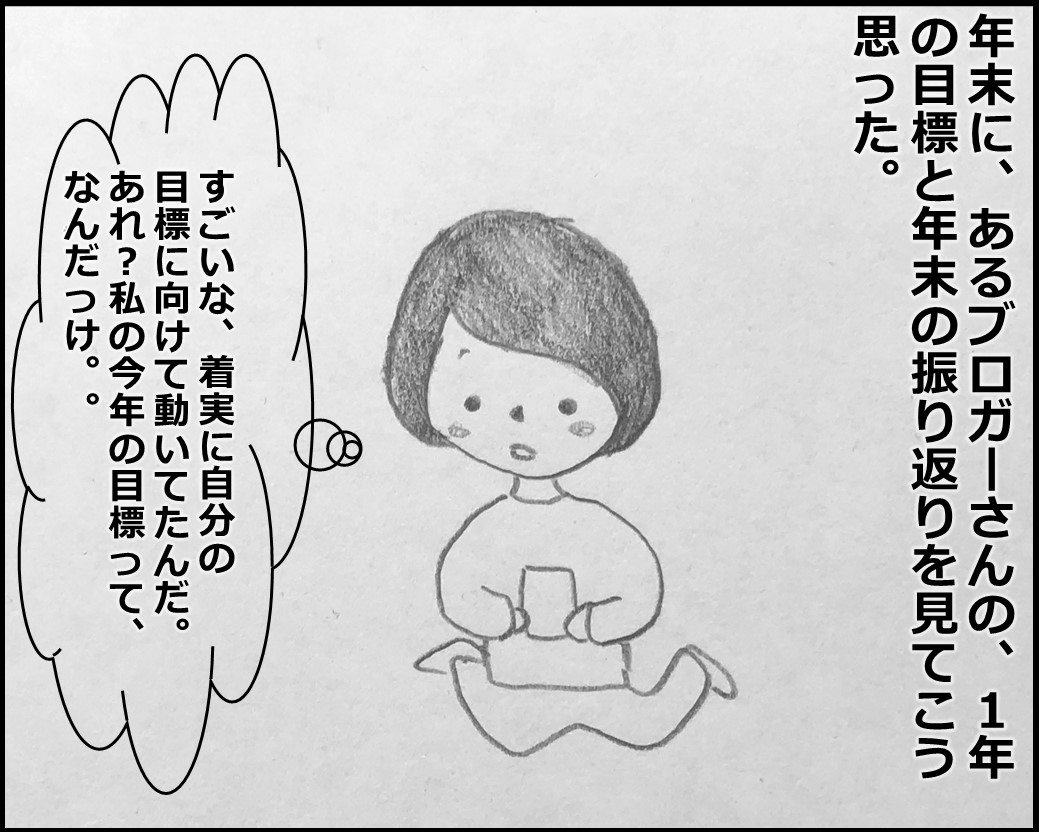 年末に、あるブロガーさんの、１年
の目標と年末の振り返りを見てこう
思った。
すごいな、着実に自分の
目標に向けて動いてたんだ。
あれ？私の今年の目標って、
なんだっけ。。